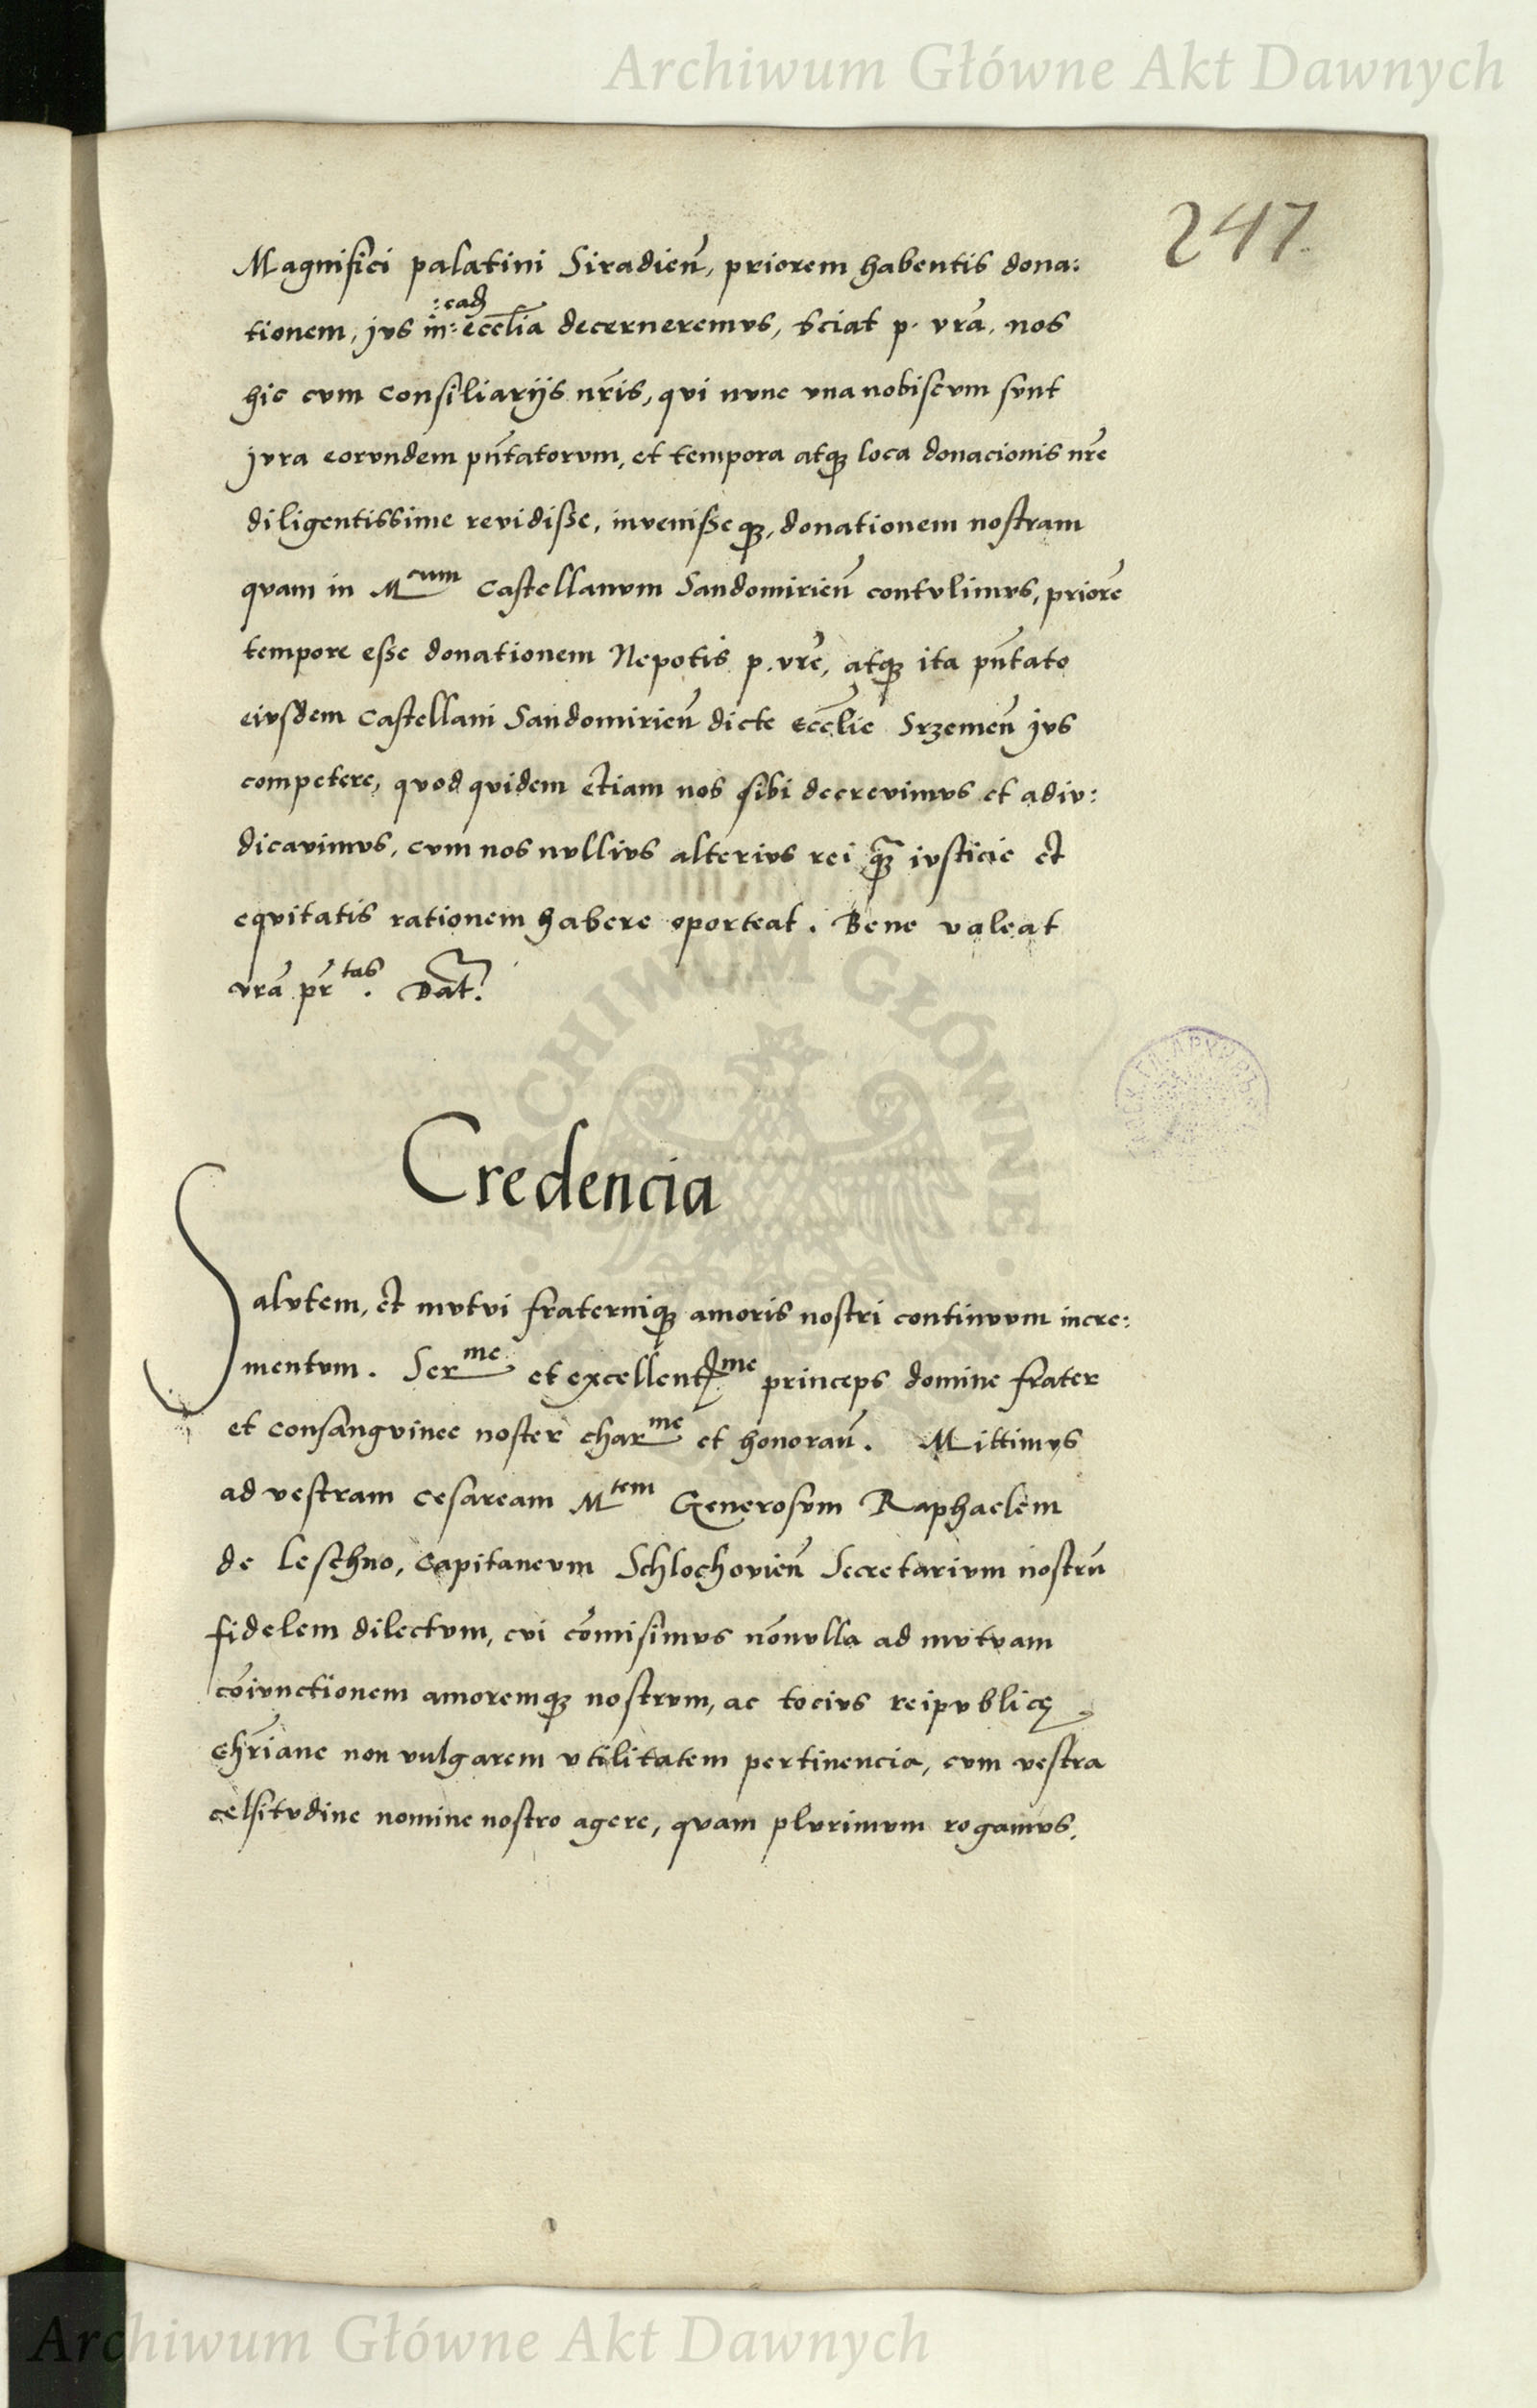 Archiwum Główne Akt Dawnych
247
Magnifici palatini Siradień, priorem habentis dona:
:eadē
tionem, jus in: eccl̄ia decerneremus, sciat p. vr̄a, nos
hic cum consiliarijs nr̄is, qui nunc una nobiscum sunt
jura eorundem pn̄tatorum, et tempora atq₃ loca donacionis nr̄e
diligentissime revidisse, invenisseq₃, donationem nostram
quam in Mcum Castellanum Sandomirień contulimus, priorē
tempore esse donationem Nepotis p. vr̄e, atq₃ ita pn̄tato
eiusdem Castellani Sandomirień dicte Eccl̄ie Srzemeń jus
competere, quod quidem etiam nos sibi decrevimus et adiu:
dicavimus, cum nos nullius alterius rei q₃̄ iusticie et
equitatis rationem habere oporteat. Bene valeat
vr̄a pr̄tas. Dat̄.
ARCHIWUM GŁÓWNE
Credencia
Salutem, et mutui fraterniq₃ amoris nostri continuum incre:
mentum. Serme et excellentme princeps domine frater
et consanguinee noster charme et honorań. Mittimus
ad vestram cesaream Mtem Generosum Raphaelem
de Leschno, Capitaneum Schlochovień Secretarium nostrū
fidelem dilectum, cui cōmisimus nōnulla ad mutuam
cōiunctionem amoremq₃ nostrum, ac tocius reipublicę
chr̄iane non vulgarem utilitatem pertinencia, cum vestra
celsitudine nomine nostro agere, quam plurimum rogamus,
Archiwum Główne Akt Dawnych